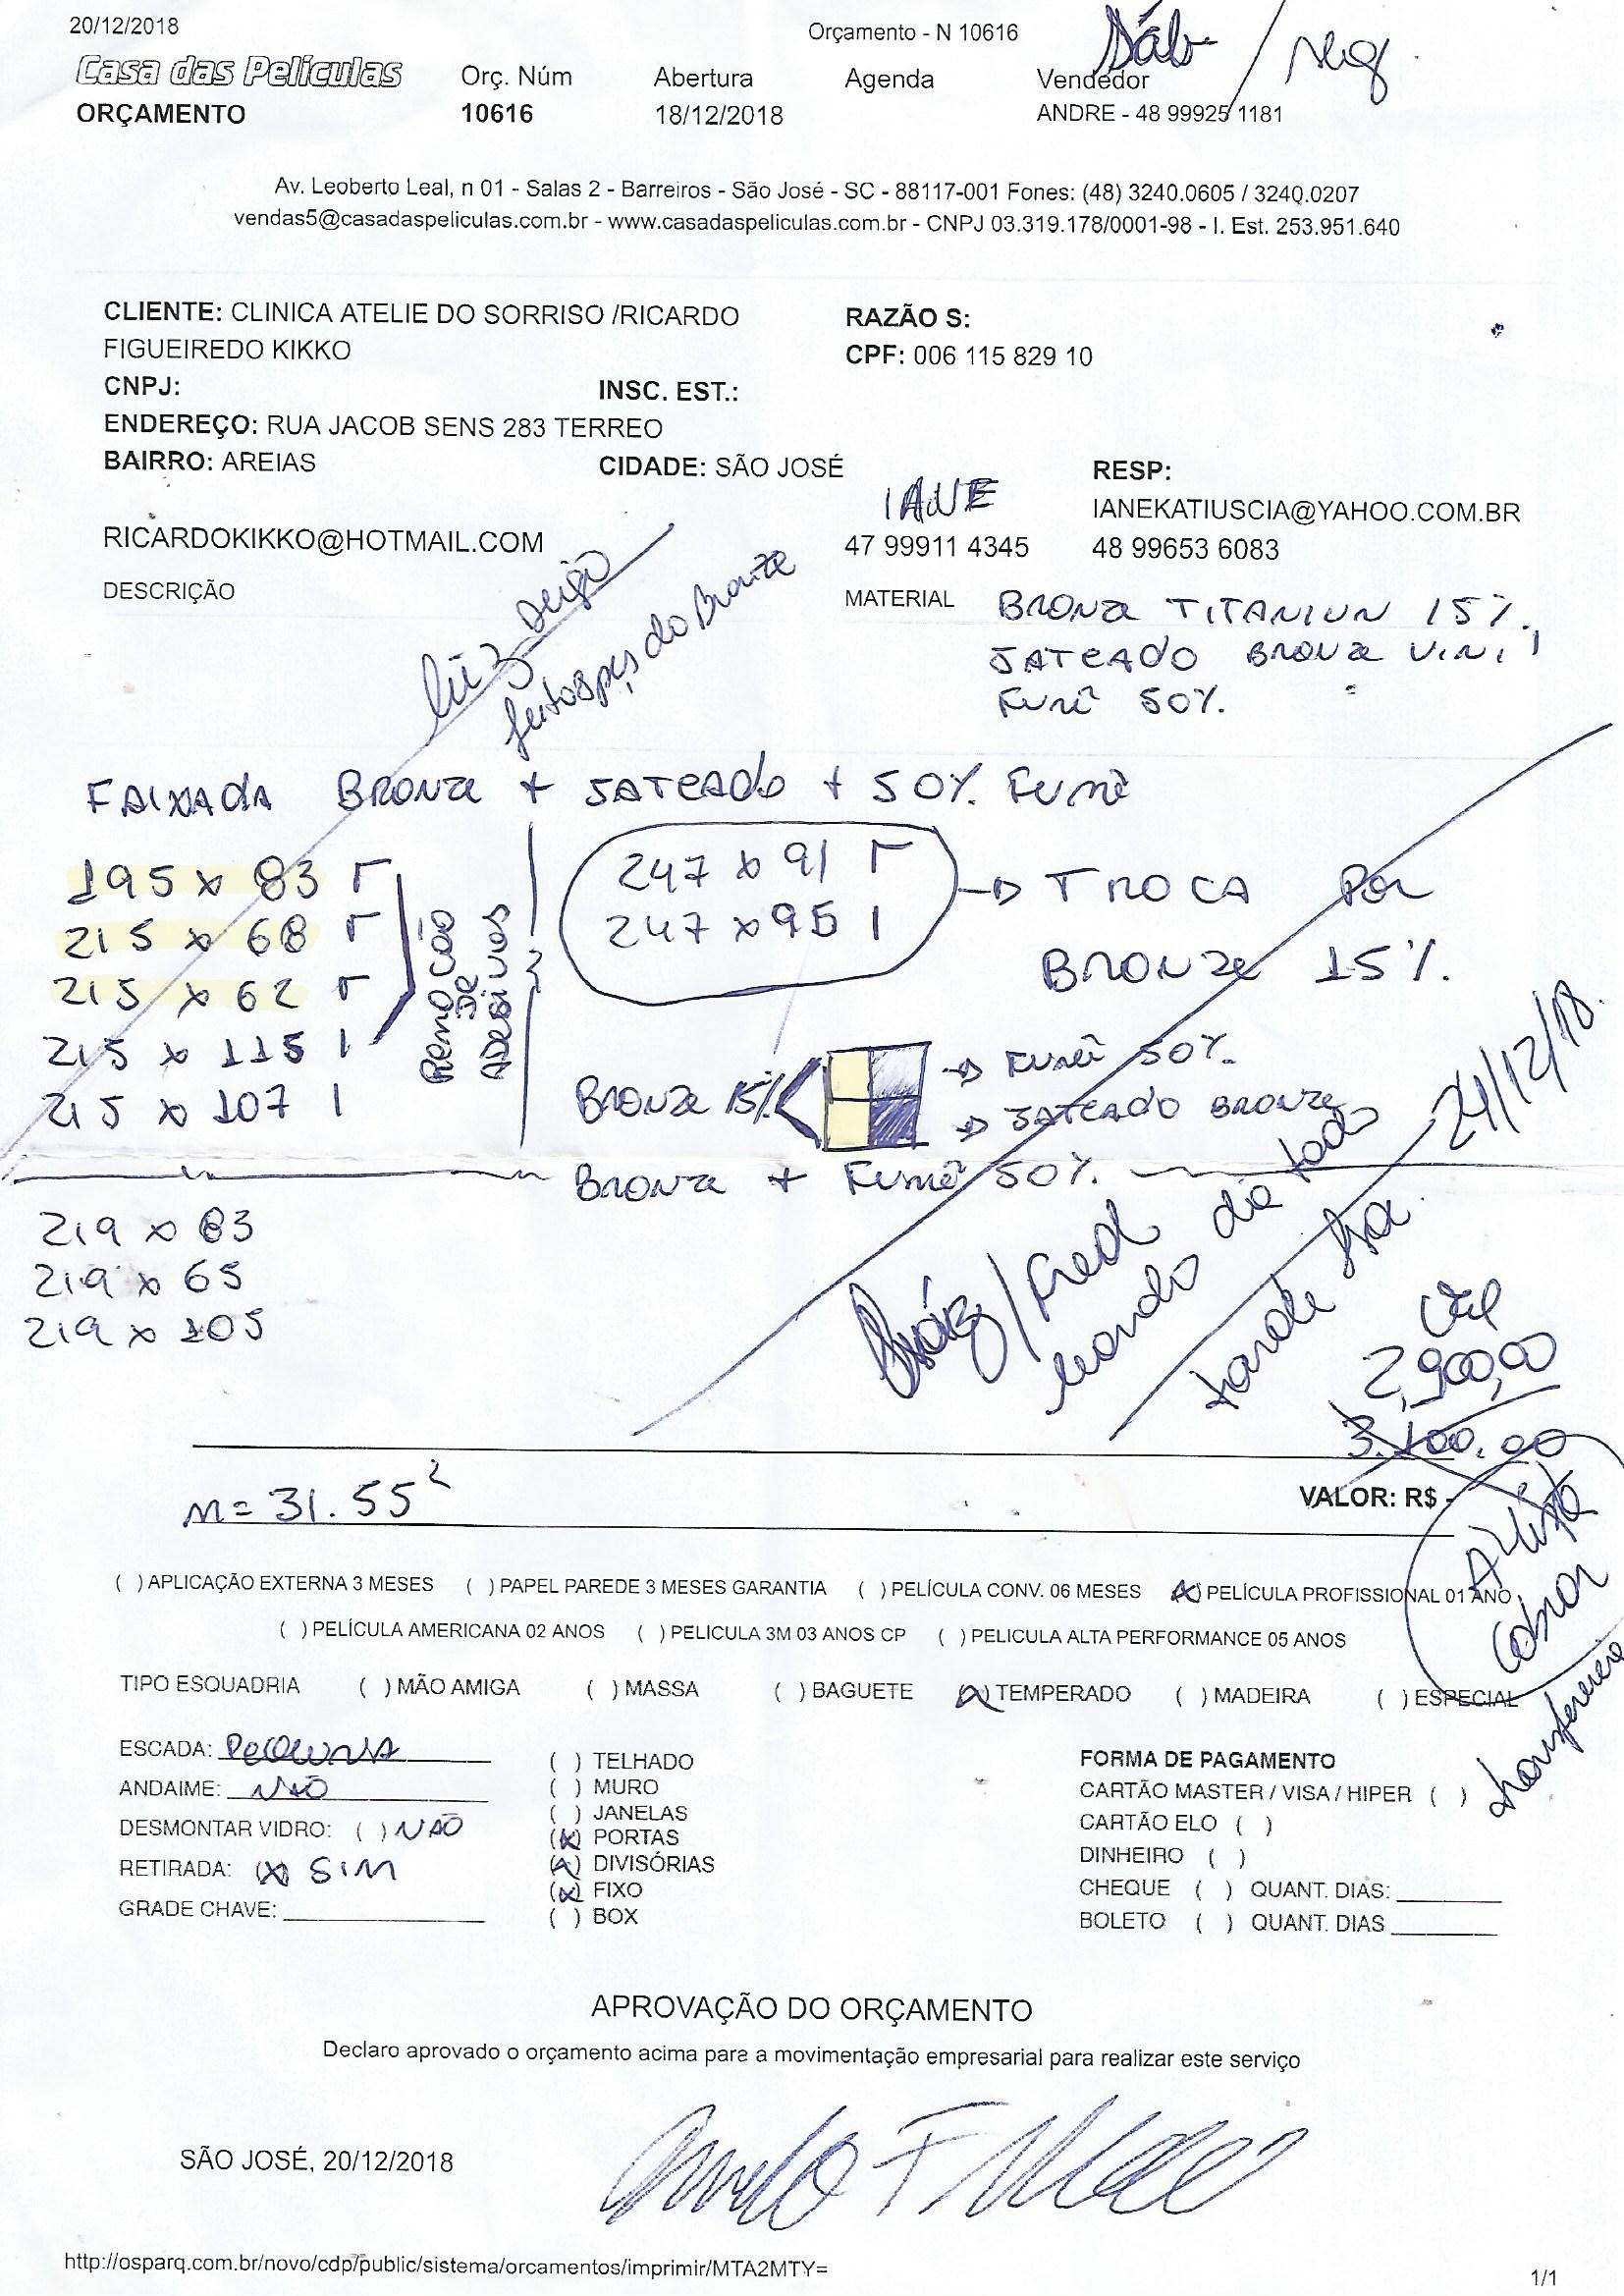 20/12/2018
Orçamento - N 10616
Sáb / seg
Casa das Películas
ORÇAMENTO
Orç. Núm
10616
Abertura
18/12/2018
Agenda
Vendedor
ANDRE - 48 99925 1181
Av. Leoberto Leal, n 01 - Salas 2 - Barreiros - São José - SC - 88117-001 Fones: (48) 3240.0605 / 3240.0207
vendas5@casadaspeliculas.com.br - www.casadaspeliculas.com.br - CNPJ 03.319.178/0001-98 - I. Est. 253.951.640
CLIENTE: CLINICA ATELIE DO SORRISO /RICARDO
FIGUEIREDO KIKKO
RAZÃO S:
CPF: 006 115 829 10
CNPJ:
INSC. EST.:
ENDEREÇO: RUA JACOB SENS 283 TERREO
BAIRRO: AREIAS
CIDADE: SÃO JOSÉ
RESP:
IANE
IANEKATIUSCIA@YAHOO.COM.BR
RICARDOKIKKO@HOTMAIL.COM
47 99911 4345
48 99653 6083
DESCRIÇÃO
MATERIAL
BRONZE TITANIUN 15%.
JATEADO BRONZE VINIL
FUMÊ 50%.
do Bronze
FAIXADA BRONZE + JATEADO + 50% FUMÊ
195 x 83
215 x 68
215 x 62
215 x 115 1
215 x 107 1
REMOÇÃO
DE
ADESIVOS
247 x 91
247 x 95 1
TROCA POR
BRONZE 15%.
BRONZE 15%
FUMÊ 50%.
JATEADO BRONZE
BRONZE + FUMÊ 50%.
219 x 83
219 x 65
219 x 105
/ Fred
mando da todo
tarde
24/12/18.
2.900,00
3.100,00
M= 31.55²
VALOR: R$ -
A vista
Cobrar
( ) APLICAÇÃO EXTERNA 3 MESES ( ) PAPEL PAREDE 3 MESES GARANTIA ( ) PELÍCULA CONV. 06 MESES (X) PELÍCULA PROFISSIONAL 01 ANO
( ) PELÍCULA AMERICANA 02 ANOS ( ) PELICULA 3M 03 ANOS CP ( ) PELICULA ALTA PERFORMANCE 05 ANOS
TIPO ESQUADRIA ( ) MÃO AMIGA ( ) MASSA ( ) BAGUETE (X) TEMPERADO ( ) MADEIRA ( ) ESPECIAL
ESCADA: PEQUENA
ANDAIME: NÃO
DESMONTAR VIDRO: ( ) NÃO
RETIRADA: (X) SIM
GRADE CHAVE:
( ) TELHADO
( ) MURO
( ) JANELAS
(X) PORTAS
(X) DIVISÓRIAS
(X) FIXO
( ) BOX
FORMA DE PAGAMENTO
CARTÃO MASTER / VISA / HIPER ( )
CARTÃO ELO ( )
DINHEIRO ( )
CHEQUE ( ) QUANT. DIAS:
BOLETO ( ) QUANT. DIAS
APROVAÇÃO DO ORÇAMENTO
Declaro aprovado o orçamento acima para a movimentação empresarial para realizar este serviço
SÃO JOSÉ, 20/12/2018
http://osparq.com.br/novo/cdp/public/sistema/orcamentos/imprimir/MTA2MTY=
1/1